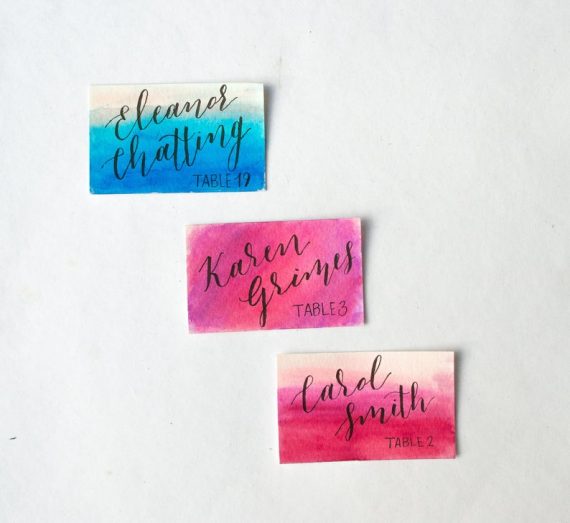 Eleanor
Chatting
TABLE 19
Karen
Grimes
TABLE 3
Carol
Smith
TABLE 2